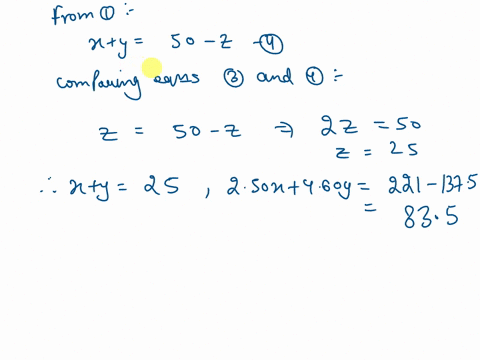 from ① :-
x+y = 50-z -④
Comparing eqns ③ and ④ :-
z = 50-z ⇒ 2z = 50
z = 25
∴ x+y = 25 , 2.50x+4.60y = 221-137.5
= 83.5